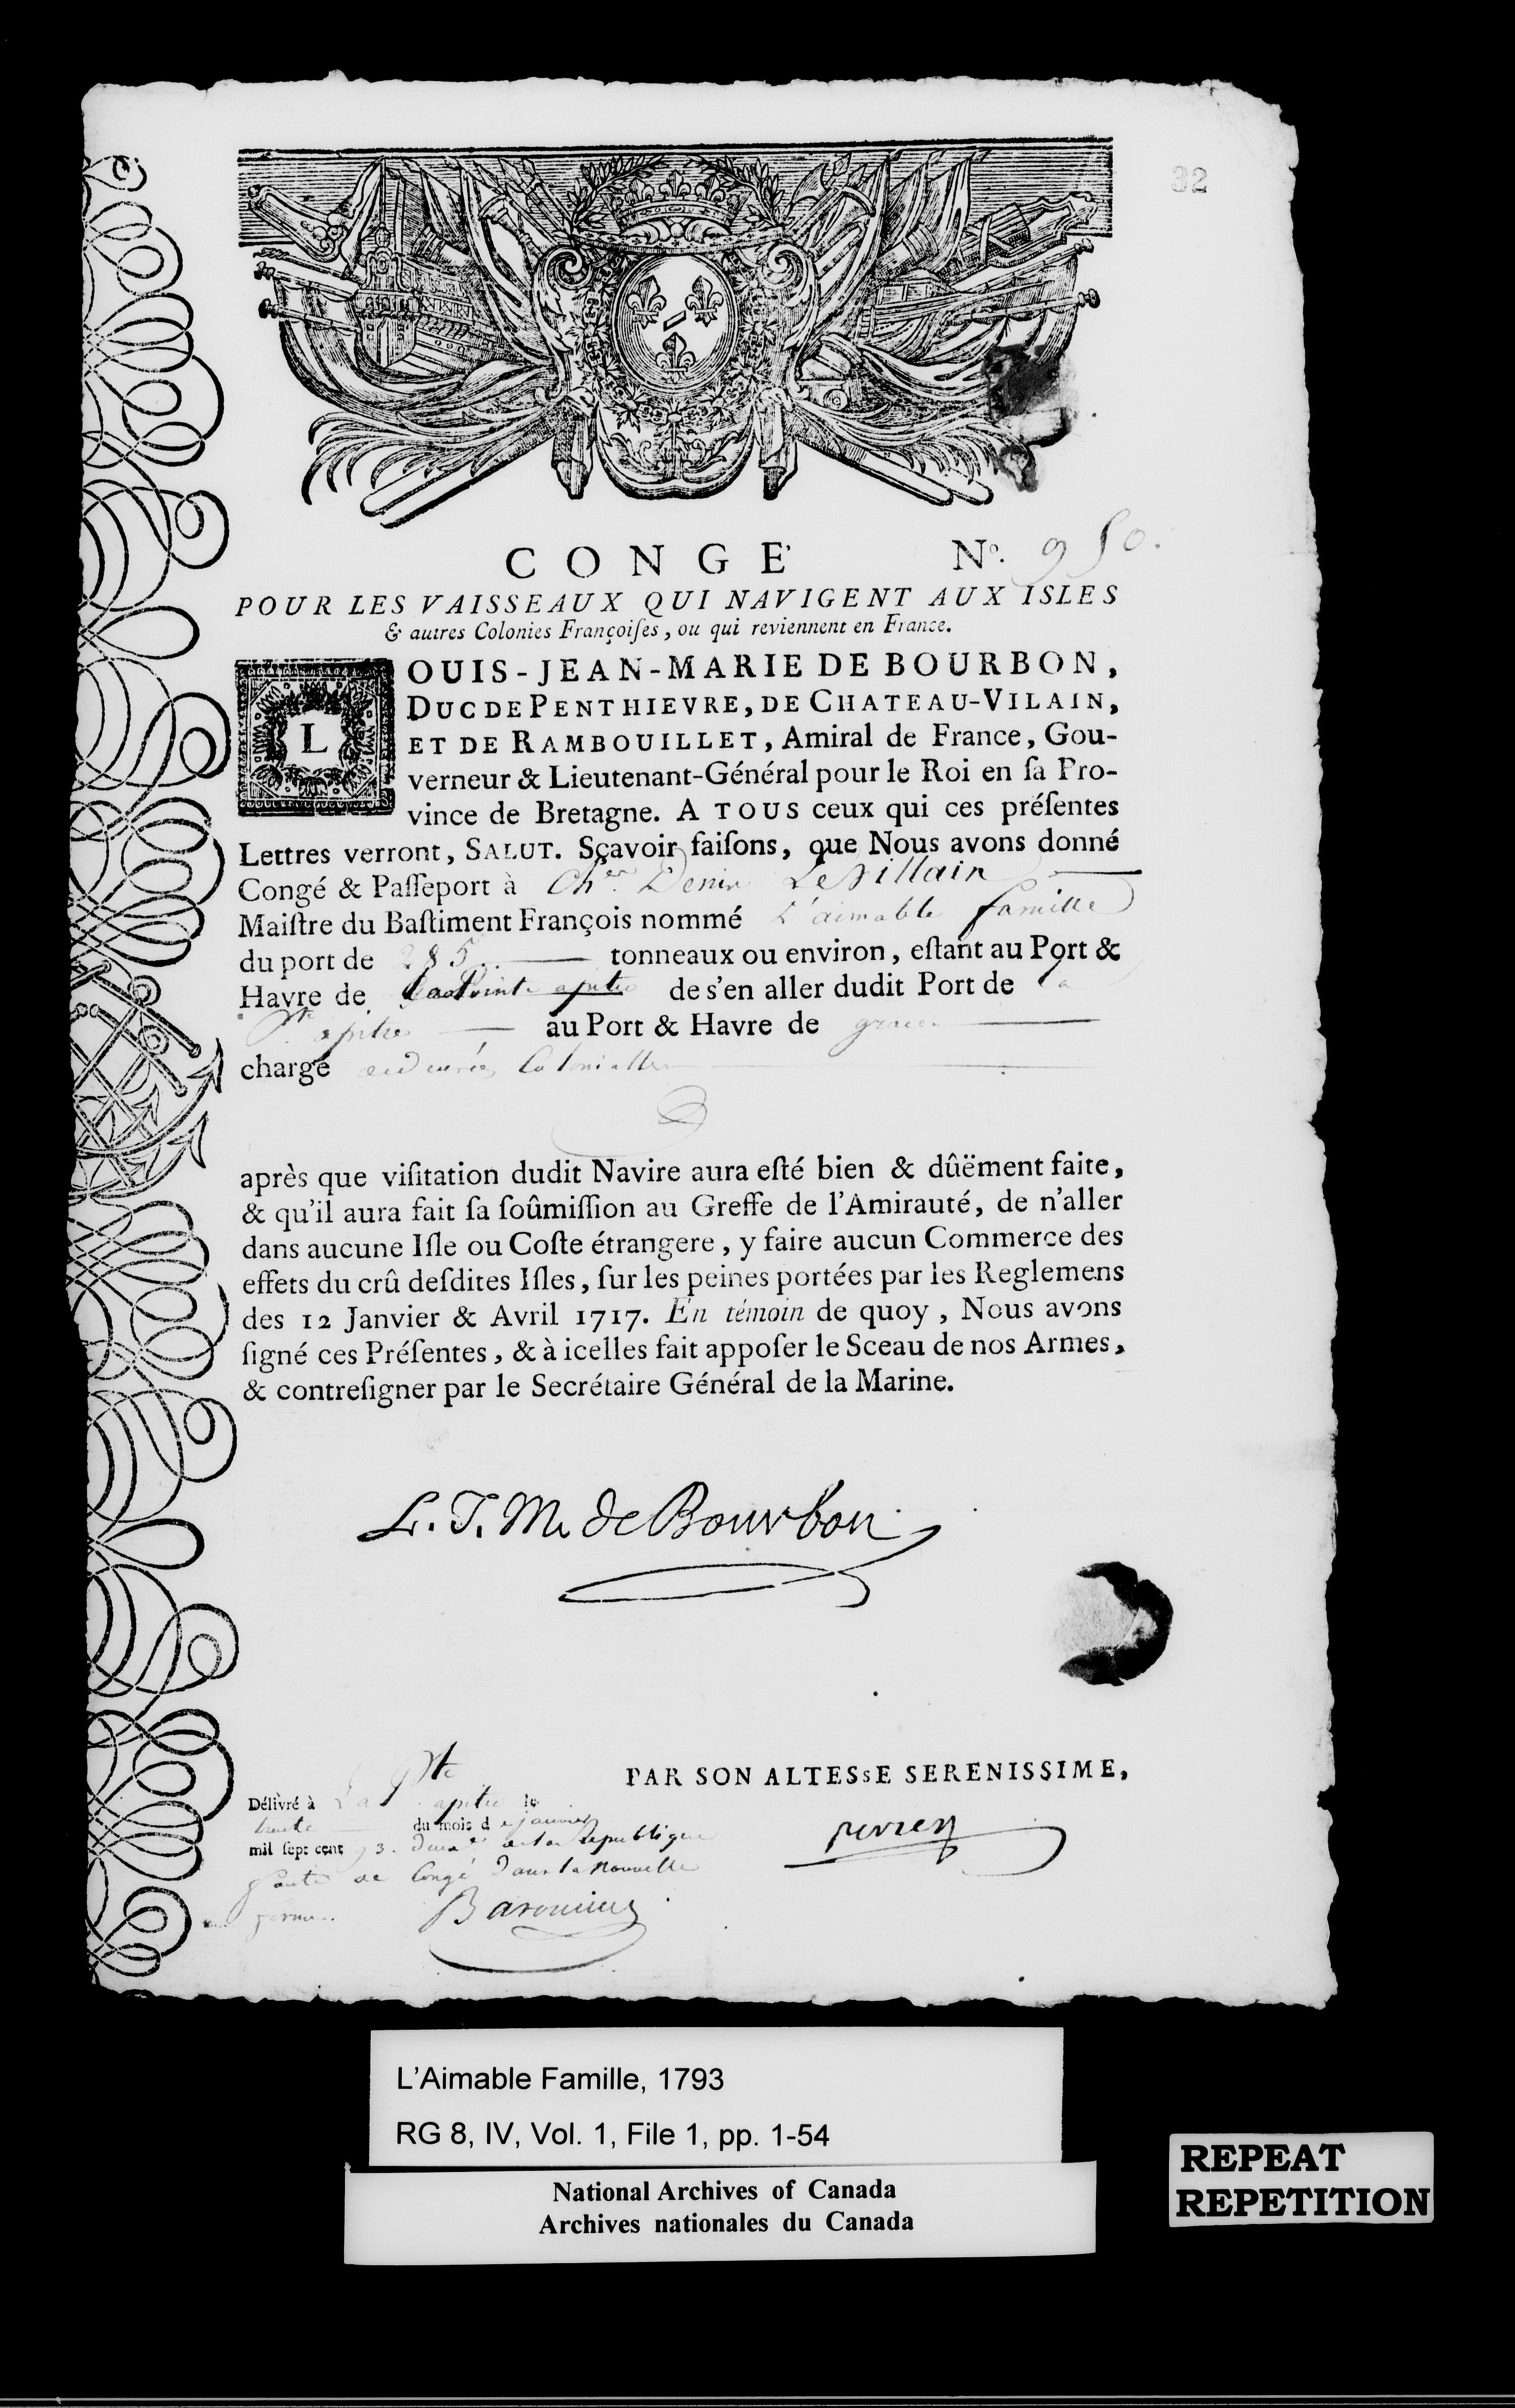 32
CONGÉ N°. 950.
POUR LES VAISSEAUX QUI NAVIGENT AUX ISLES
& autres Colonies Françoiſes, ou qui reviennent en France.
LOUIS-JEAN-MARIE DE BOURBON,
DUC DE PENTHIEVRE, DE CHATEAU-VILAIN,
ET DE RAMBOUILLET, Amiral de France, Gou-
verneur & Lieutenant-Général pour le Roi en ſa Pro-
vince de Bretagne. A TOUS ceux qui ces préſentes
Lettres verront, SALUT. Sçavoir faiſons, que Nous avons donné
Congé & Paſſeport à Ch.er Denis LeVillain
Maiſtre du Baſtiment François nommé L'aimable famille
du port de 285 tonneaux ou environ, eſtant au Port &
Havre de La Pointe apitre de s'en aller dudit Port de la
Pte apitre au Port & Havre de grace
chargé Colonialle
après que viſitation dudit Navire aura eſté bien & dûëment faite,
& qu'il aura fait ſa ſoûmiſſion au Greffe de l'Amirauté, de n'aller
dans aucune Iſle ou Coſte étrangere, y faire aucun Commerce des
effets du crû deſdites Iſles, ſur les peines portées par les Reglemens
des 12 Janvier & Avril 1717. En témoin de quoy, Nous avons
ſigné ces Préſentes, & à icelles fait appoſer le Sceau de nos Armes,
& contreſigner par le Secrétaire Général de la Marine.
L. J. M. de Bourbon
PAR SON ALTESsE SERENISSIME,
Délivré à La Pte apitre le
du mois de janvier
mil ſept cent 93. de la republique
faute de Congé dans la Nouvelle
forme.
L'Aimable Famille, 1793
RG 8, IV, Vol. 1, File 1, pp. 1-54
National Archives of Canada
Archives nationales du Canada
REPEAT
REPETITION